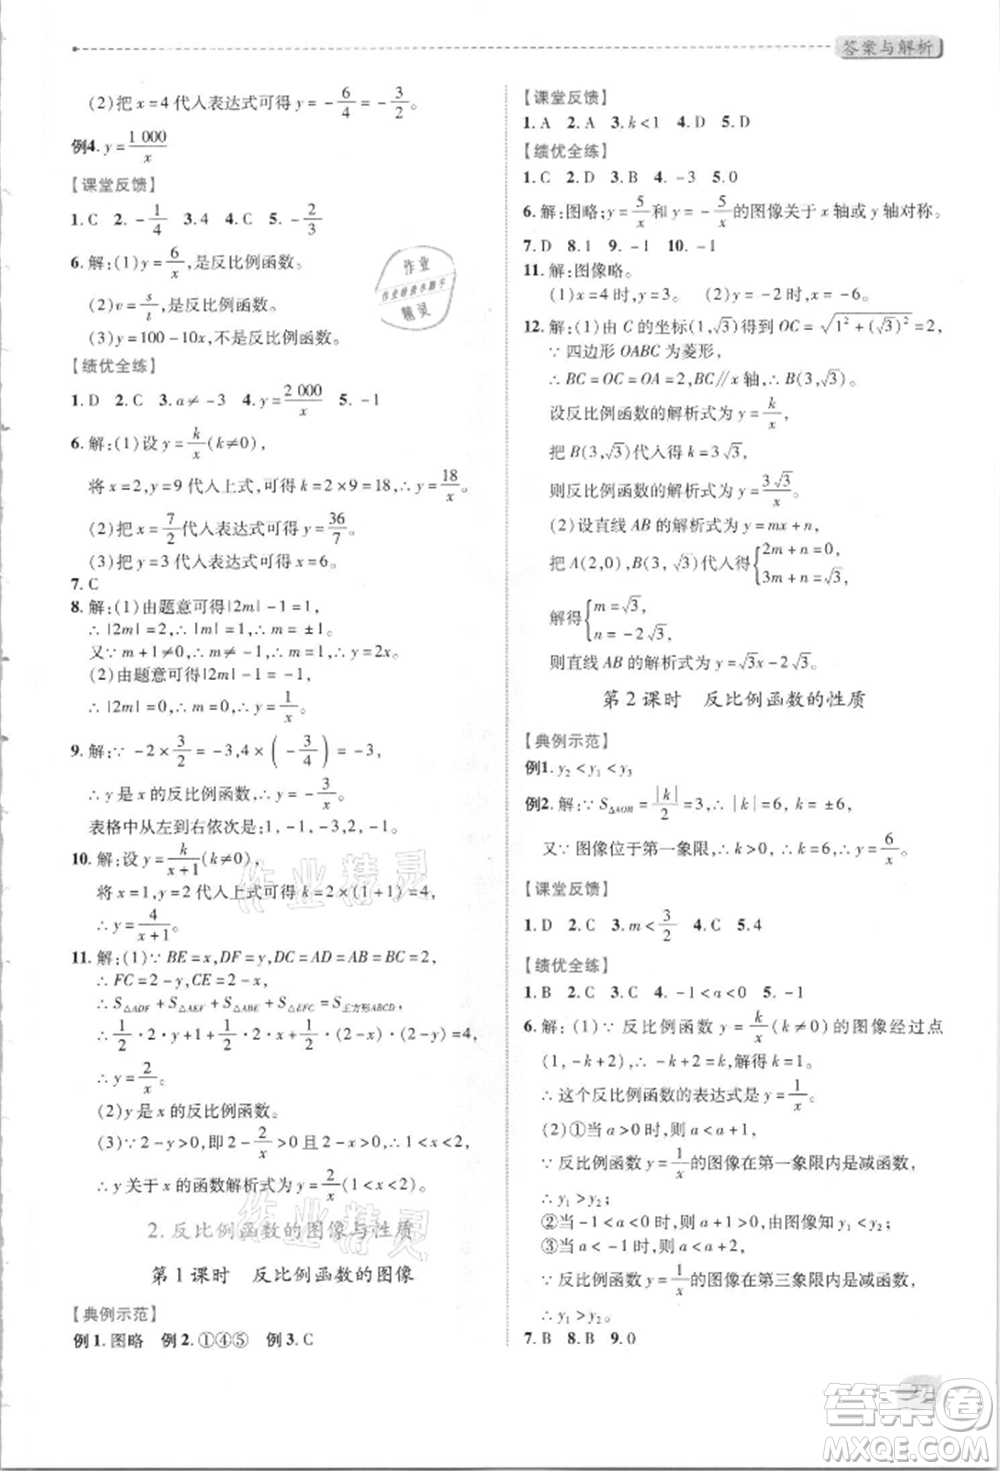 答案与解析
(2)把 x=4 代入表达式可得 y=-6/4=-3/2。
例4. y=1 000/x
【课堂反馈】
1. C 2. -1/4 3. 4 4. C 5. -2/3
6. 解:(1)y=6/x,是反比例函数。
(2)v=s/t,是反比例函数。
(3)y=100-10x,不是反比例函数。
【绩优全练】
1. D 2. C 3. a≠-3 4. y=2 000/x 5. -1
6. 解:(1)设 y=k/x(k≠0),
将 x=2,y=9 代入上式,可得 k=2×9=18,∴y=18/x。
(2)把 x=7/2代入表达式可得 y=36/7。
(3)把 y=3 代入表达式可得 x=6。
7. C
8. 解:(1)由题意可得|2m|-1=1,
∴|2m|=2,∴|m|=1,∴m=±1。
又∵m+1≠0,∴m=1,∴y=2x。
(2)由题意可得|2m|-1=-1,
∴|2m|=0,∴m=0,∴y=1/x。
9. 解:∵-2×3/2=-3,4×(-3/4)=-3,
∴y 是 x 的反比例函数,∴y=-3/x。
表格中从左到右依次是:3,-1,-3/2,1。
10. 解:设 y=k/(x+1)(k≠0),
将 x=1,y=2 代入上式可得 k=2×2=4,
∴y=4/(x+1)。
11. 解:(1)∵BE=x,DF=y,DC=BC=2,
∴FC=2-y,EC=2-x。
∴S△ADF+S△AEF+S△ABE+S△EFC=S正方形ABCD,
∴1/2·2·y+1/2·2·2+1/2·2·x+1/2·(2-x)·(2-y)=4,
∴y=2/x。
(2)y 是 x 的反比例函数。
(3)∵2-y>0,即 2-2/x>0 且 2-x>0,∴1<x<2,
∴y 关于 x 的函数解析式为 y=2/x(1<x<2)。
2. 反比例函数的图像与性质
第 1 课时 反比例函数的图像
【典例示范】
例 1. 图略 例 2. ①④⑤ 例 3. C
【课堂反馈】
1. A 2. A 3. k<1 4. D 5. D
【绩优全练】
1. C 2. D 3. B 4. -3 5. 0
6. 解:图略;y=5/x和 y=-5/x的图像关于 x 轴或 y 轴对称。
7. D 8. 1 9. -1 10. -1
11. 解:图像略。
(1)x=4 时,y=3。 (2)y=-2 时,x=-6。
12. 解:(1)由 C 的坐标(1,√3)得到 OC=√(1²+(√3)²)=2,
∵四边形 OABC 为菱形,
∴BC=OC=OA=2,BC∥x 轴,∴B(3,√3)。
设反比例函数的解析式为 y=k/x,
把 B(3,√3)代入得 k=3√3,
则反比例函数的解析式为 y=3√3/x。
(2)设直线 AB 的解析式为 y=mx+n,
把 A(2,0),B(3,√3)代入得{2m+n=0, 3m+n=√3,
解得{m=√3, n=-2√3,
则直线 AB 的解析式为 y=√3x-2√3。
第 2 课时 反比例函数的性质
【典例示范】
例1. y₂<y₁<y₃
例2. 解:∵S△AOB=|k|/2=3,∴|k|=6,∴k=±6,
又∵图像位于第一象限,∴k>0,∴k=6,∴y=6/x。
【课堂反馈】
1. D 2. C 3. m<3/2 4. C 5. 4
【绩优全练】
1. B 2. C 3. C 4. -1<a<0 5. -1
6. 解:(1)∵反比例函数 y=k/x(k≠0)的图像经过点
(1,-k+2),∴-k+2=k,解得 k=1。
∴这个反比例函数的表达式是 y=1/x。
(2)①当 a>0 时,则 a<a+1,
∵反比例函数 y=1/x的图像在第一象限内是减函数,
∴y₁>y₂;
②当-1<a<0 时,a+1>0,由图像知 y₁<y₂;
③当 a<-1 时,则 a<a+1,
∵反比例函数 y=1/x的图像在第三象限内是减函数,
∴y₁>y₂。
7. B 8. B 9. 0
作业精灵
答案圈
MXQE.COM